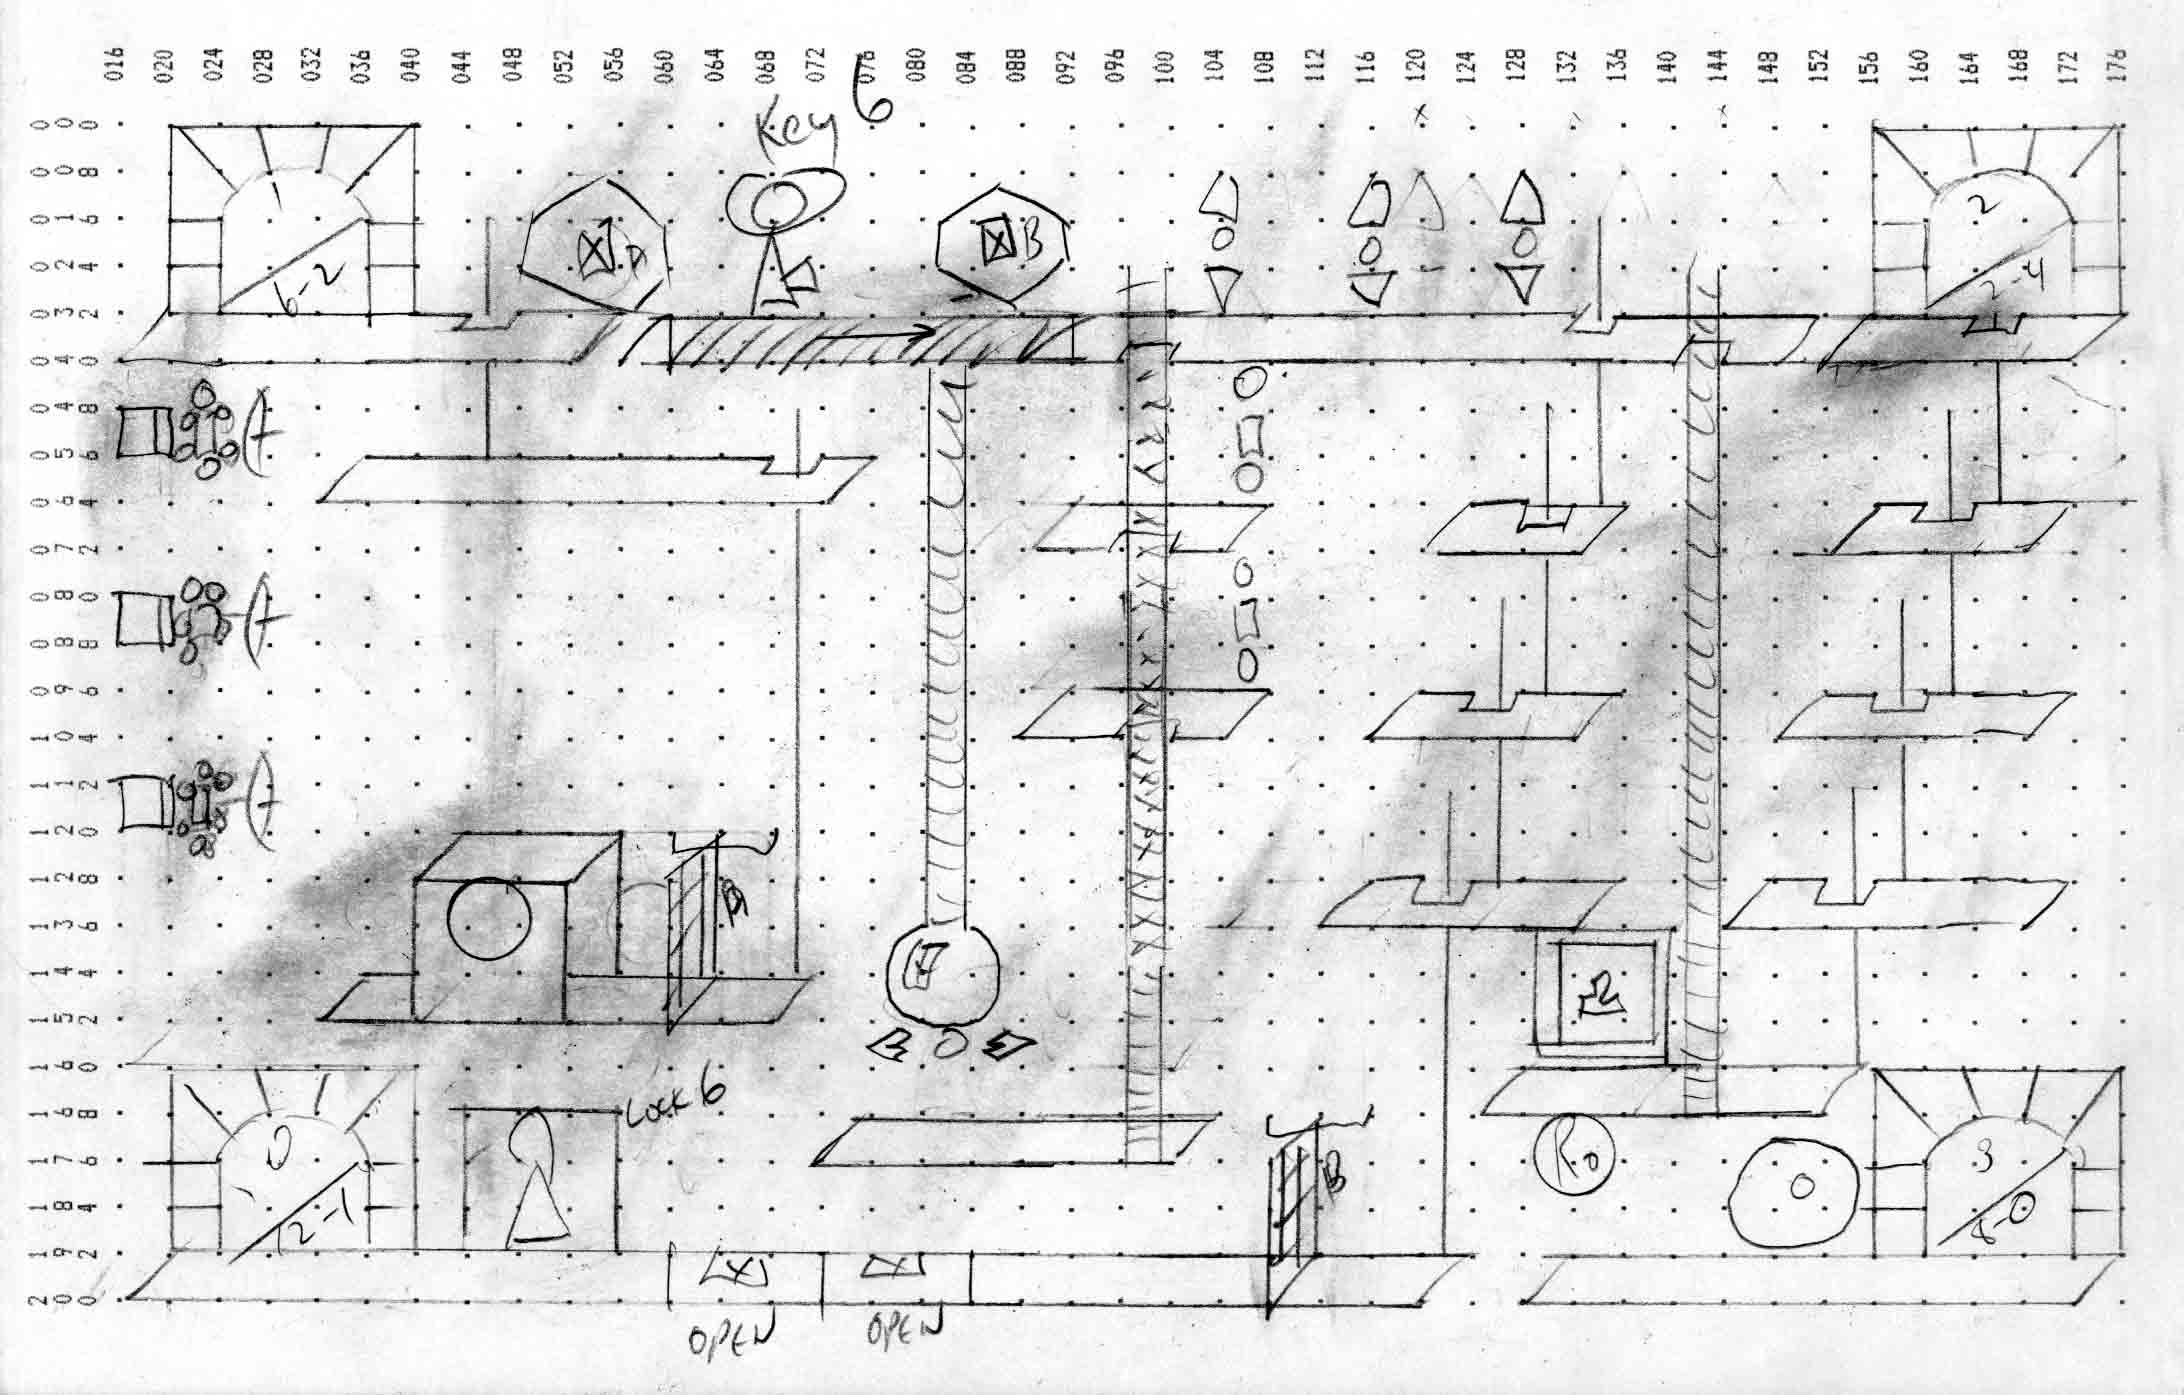 016 020 024 028 032 036 040 044 048 052 056 060 064 068 072 076 080 084 088 092 096 100 104 108 112 116 120 124 128 132 136 140 144 148 152 156 160 164 168 172 176
Key 6
000
008
016
024
032
040
048
056
064
072
080
088
096
104
112
120
128
136
144
152
160
168
176
184
192
200
1
6-2
B
2
2-4
B
LOCK 6
R0
B
0
12-1
O
3
OPEN
OPEN